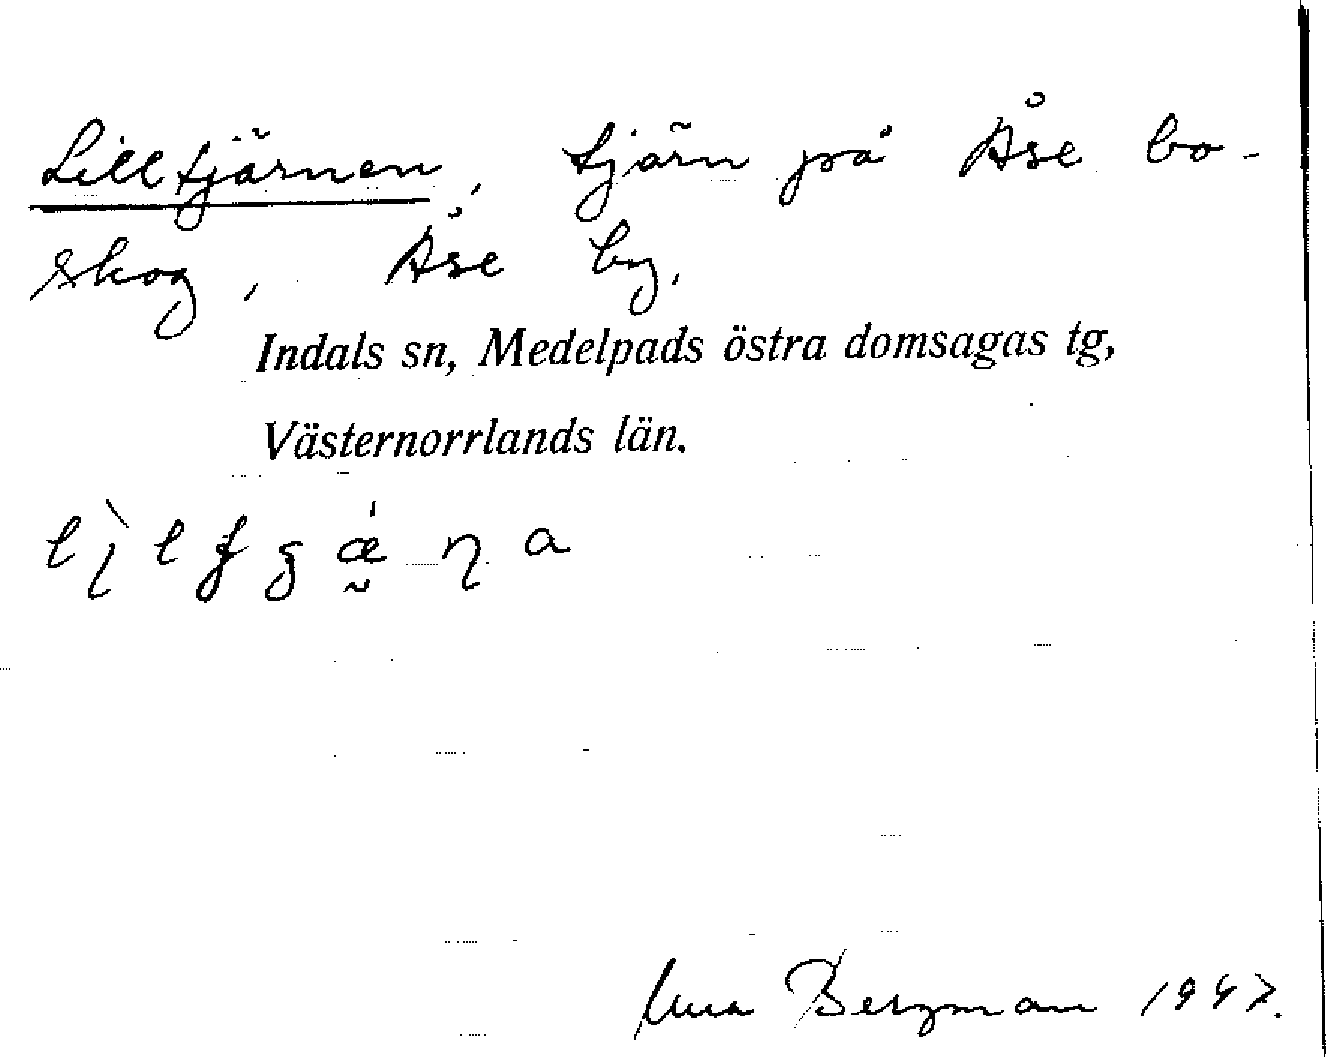 Lilltjärnen, tjärn på Åse bo-
skog, Åse by.
Indals sn, Medelpads östra domsagas tg,
Västernorrlands län.
Bergman 1947.